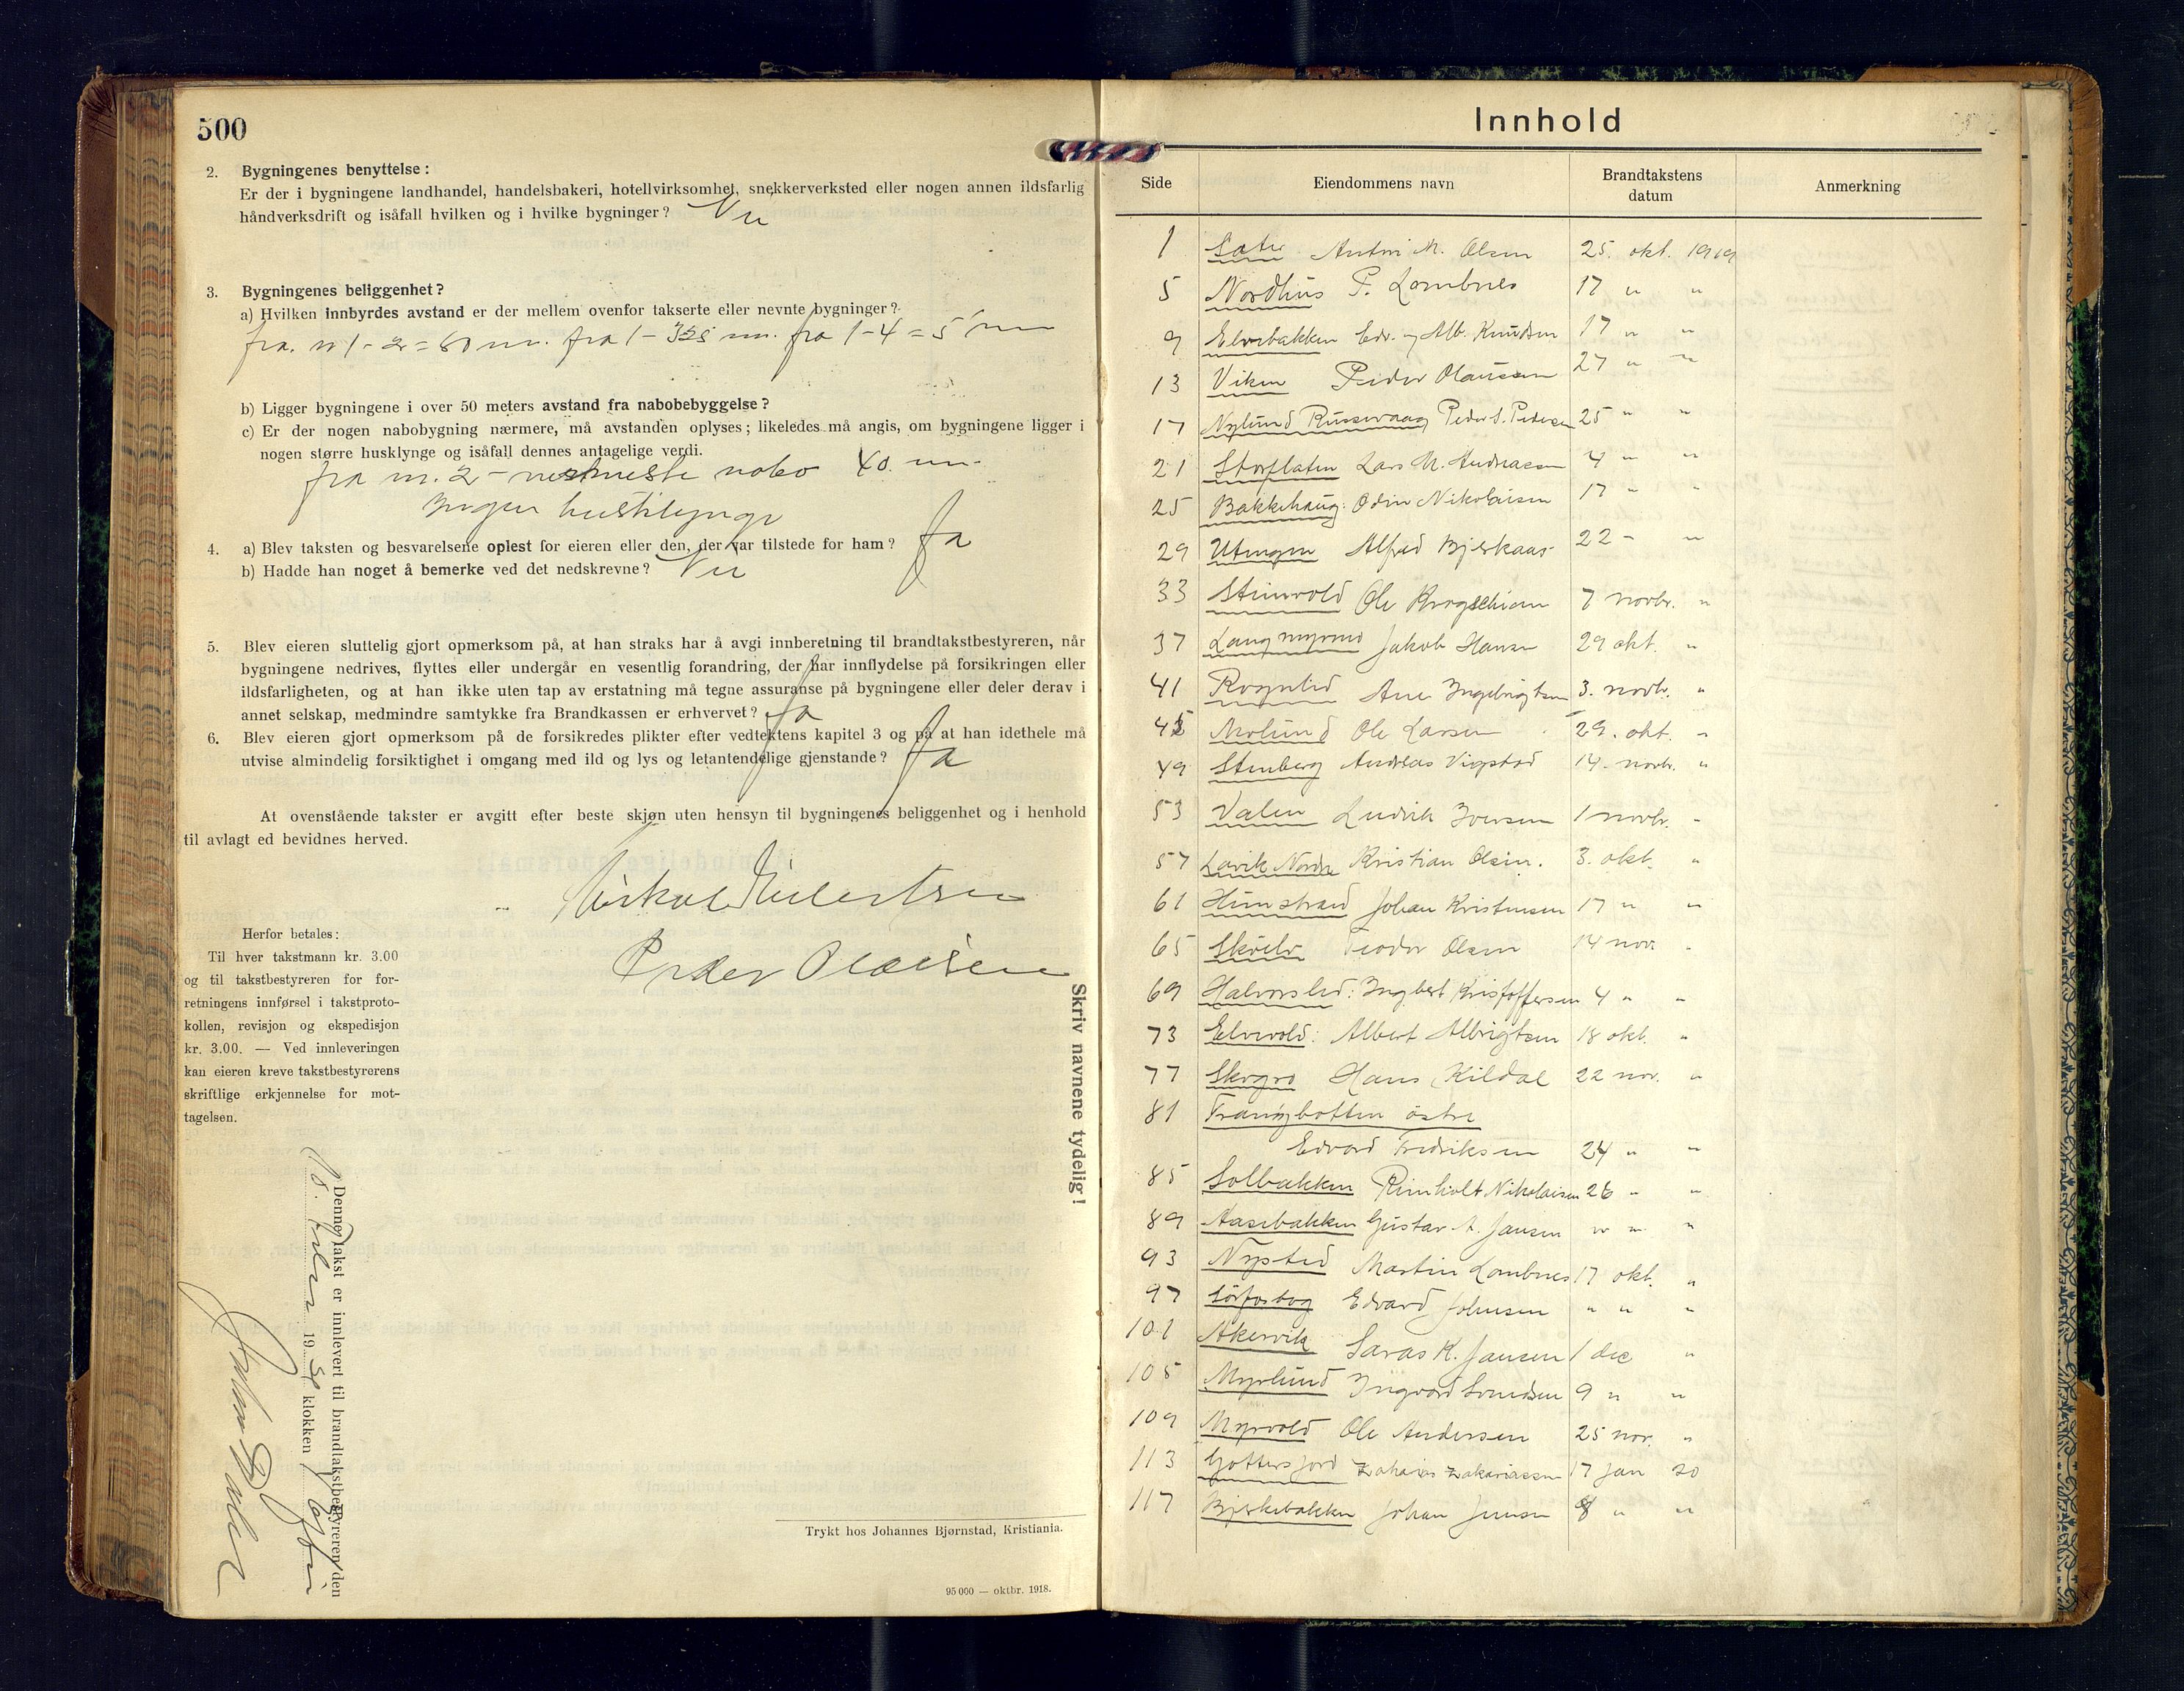 500
2. Bygningenes benyttelse:
Er der i bygningene landhandel, handelsbakeri, hotellvirksomhet, snekkerverksted eller nogen annen ildsfarlig
håndverksdrift og isåfall hvilken og i hvilke bygninger? Nei
3. Bygningenes beliggenhet?
a) Hvilken innbyrdes avstand er der mellem ovenfor takserte eller nevnte bygninger?
fra 1-4 = 5 m
b) Ligger bygningene i over 50 meters avstand fra nabobebyggelse?
c) Er der nogen nabobygning nærmere, må avstanden oplyses; likeledes må angis, om bygningene ligger i
nogen større husklynge og isåfall dennes antagelige verdi.
fra nr. 2 - nabo 40 m.
Ingen
4. a) Blev taksten og besvarelsene oplest for eieren eller den, der var tilstede for ham? Ja
b) Hadde han noget å bemerke ved det nedskrevne? Nei
5. Blev eieren sluttelig gjort opmerksom på, at han straks har å avgi innberetning til brandtakstbestyreren, når
bygningene nedrives, flyttes eller undergår en vesentlig forandring, der har innflydelse på forsikringen eller
ildsfarligheten, og at han ikke uten tap av erstatning må tegne assuranse på bygningene eller deler derav i
annet selskap, medmindre samtykke fra Brandkassen er erhvervet? Ja
6. Blev eieren gjort opmerksom på de forsikredes plikter efter vedtektens kapitel 3 og på at han idethele må
utvise almindelig forsiktighet i omgang med ild og lys og letantendelige gjenstande? Ja
At ovenstående takster er avgitt efter beste skjøn uten hensyn til bygningenes beliggenhet og i henhold
til avlagt ed bevidnes herved.
Peder Olaisen
Herfor betales:
Til hver takstmann kr. 3.00
og til takstbestyreren for for-
retningens innførsel i takstproto-
kollen, revisjon og ekspedisjon
kr. 3.00. — Ved innleveringen
kan eieren kreve takstbestyrerens
skriftlige erkjennelse for mot-
tagelsen.
Denne takst er innlevert til brandtakstbestyreren den
19 klokken
Skriv navnene tydelig!
Trykt hos Johannes Bjørnstad, Kristiania.
95 000 — oktbr. 1918.
Innhold
Side Eiendommens navn Brandtakstens datum Anmerkning
1 M. Olsen 25. okt. 1919
5 Nordhus P. Lombnes 17 " "
9 Elvebakken Edv. og Alb. Knudsen 17 " "
13 Viken Peder Olaussen 27 " "
17 Nylund Russevaag Peder S. Pedersen 25 " "
21 Storflaten Lars M. Andreasen 4 " "
25 Bakkehaug: Odin Nikolaisen 17 " "
29 Alfred Bjerkaas 22 - "
33 Steinvold Ole 7 novbr. "
37 Langmyrmo Jakob Hansen 29 okt. "
41 Rognlid Ane Ingebrigtsen 3. novbr. "
45 Molund Ole Larsen 29. okt. "
49 Stenberg Andreas Vigstad 14. novbr. "
53 Valen Ludvik Iversen 1 novbr. "
57 Lavik Nordre Kristian Olsen. 3. okt. "
61 Johan Kristensen 17 " "
65 Teodor Olsen 14 nov. "
69 Halvorslid: Ingbert Kristoffersen 4 " "
73 Elvevold: Albert Albrigtsen 18 okt. "
77 Skogro Hans Kildal 22 nov. "
81 Tranybotten östre
Edvard Fredriksen 24 " "
85 Solbakken Reinholt Nikolaisen 26 " "
89 Aasebakken Gustav A. Jansen " " "
93 Nysted Martin Lombnes 17 okt. "
97 Sörfosbog Edvard Johnsen " " "
101 Akervik Saras K. Jansen 1 dec "
105 Myrlund Ingvard Svendsen 9 " "
109 Myrvold Ole Andersen 25 nov. "
113 Gottersjord Zakarias Zakariassen 17 jan 20
117 Bjerkebakken Johan Jensen 8 " "